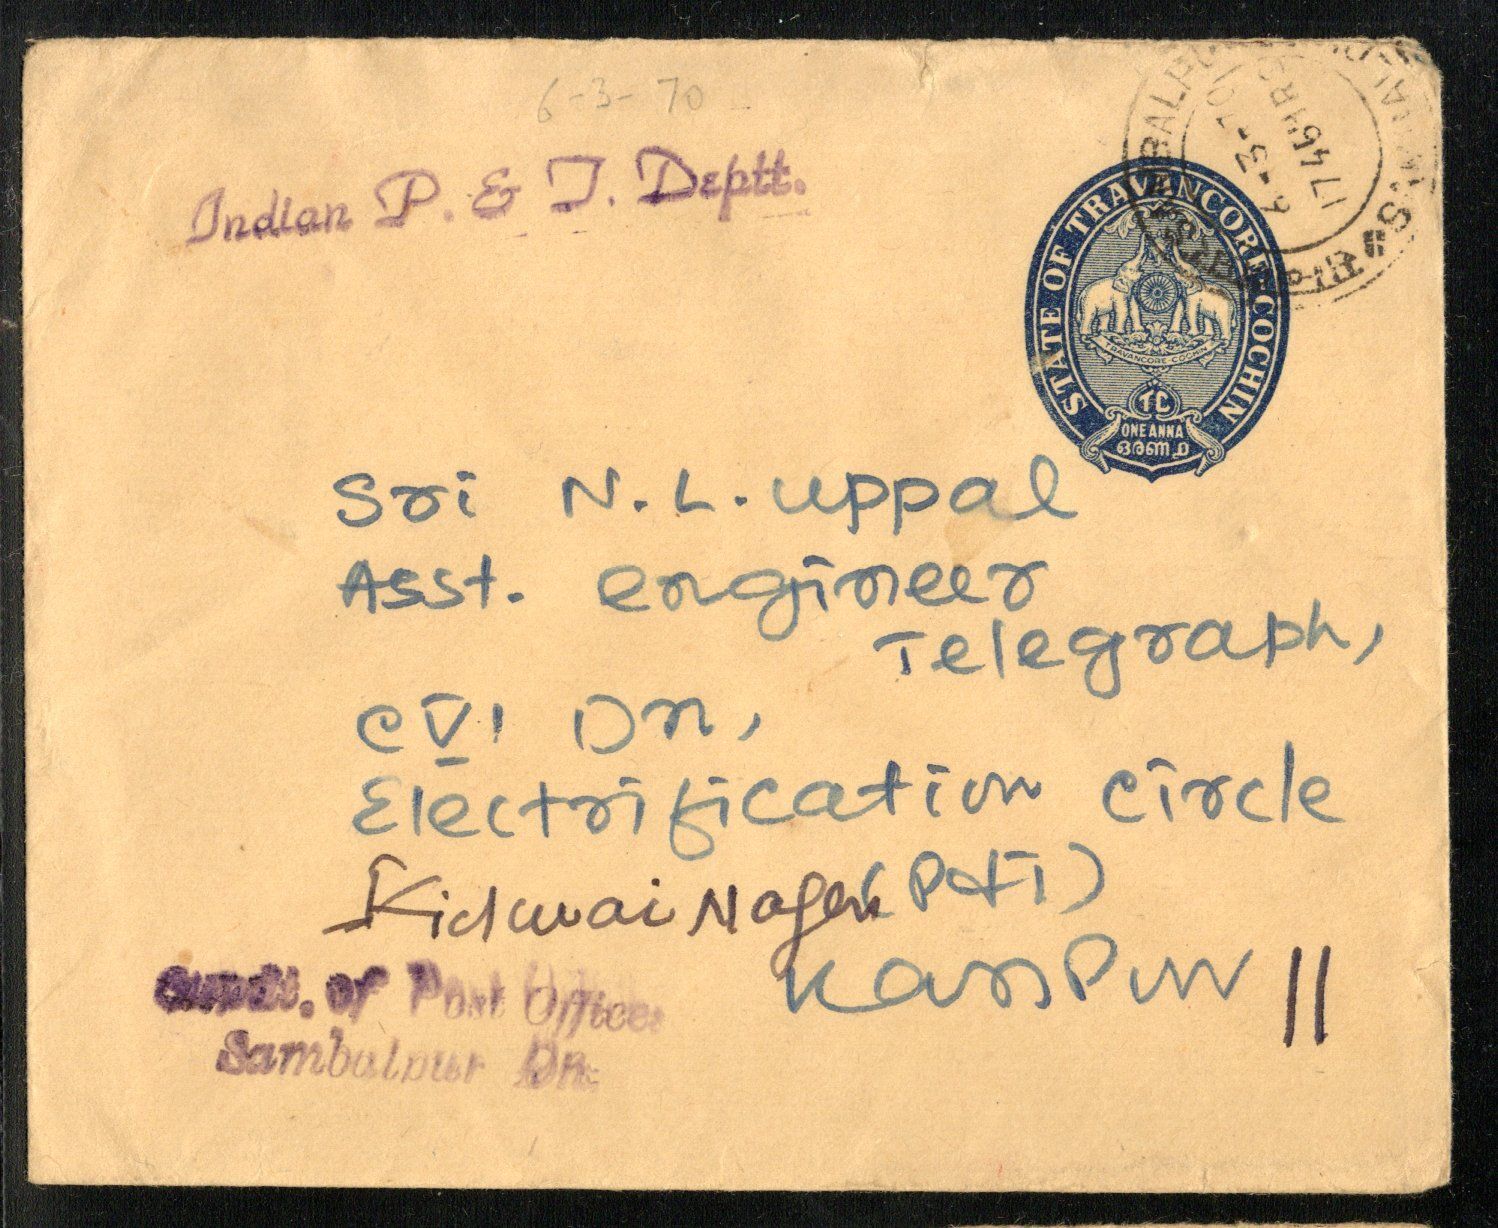 6-3-70
Indian P. & T. Deptt.
6-3-70
1745HRS
STATE OF TRAVANCORE-COCHIN
TRAVANCORE-COCHIN
TC
ONE ANNA
ഒരണ
Sri N.L. Uppal
Asst. Engineer
Telegraph,
CVI Dn,
Electrification Circle
(P&T)
Kidwai Nagar
Kanpur 11
Supdt. of Post Offices
Sambalpur Dn.